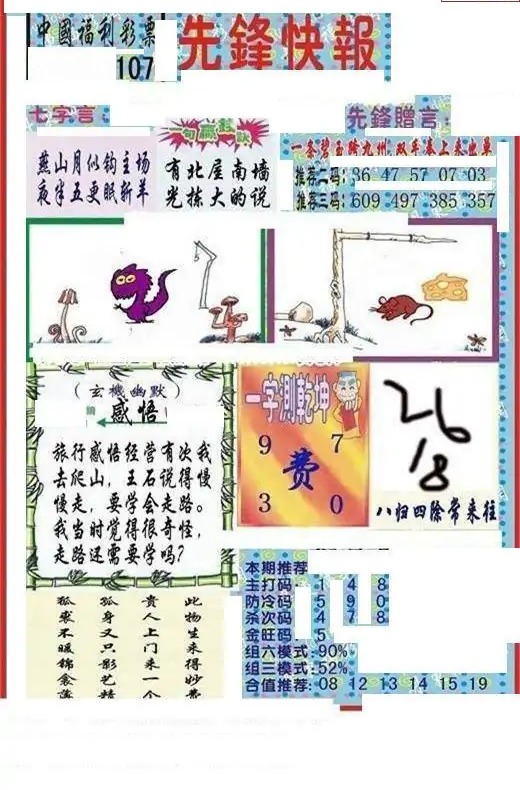 中國福利彩票
107
先鋒快報
七字言:
燕山月似钩主场
夜半五更眠斩羊
一句赢钱诀
有北屋南墙
光拣大的说
先鋒贈言:
推荐二码: 36 47 57 07 03
推荐三码: 609 497 385 357
(玄機幽默)
感悟
旅行感悟经营有次我
去爬山，王石说得慢
慢走，要学会走路。
我当时觉得很奇怪，
走路还需要学吗?
一字測乾坤
9 7
费
3 0
26
18
八归四除常来往
此物生来得妙费
贵人上门来一个
孤身又只影艺精
孤裘不暖锦衾薄
本期推荐
主打码: 1 4 8
防冷码: 5 9 0
杀次码: 4 7 8
金旺码: 5
组六模式: 90%
组三模式: 52%
合值推荐: 08 12 13 14 15 19